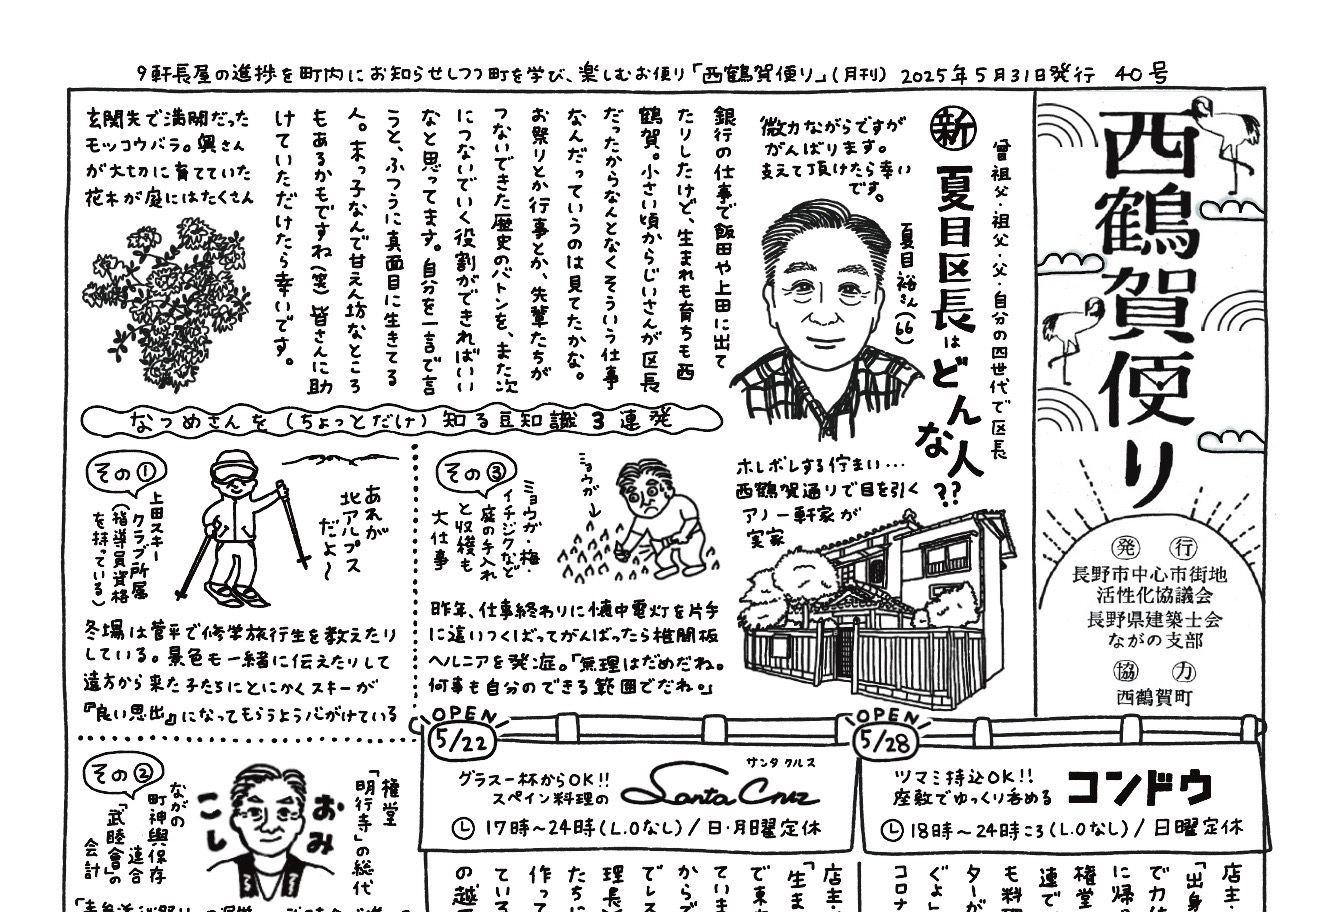 9軒長屋の進捗を町内にお知らせしつつ町を学び、楽しむお便り「西鶴賀便り」(月刊) 2025年5月31日発行 40号
西鶴賀便り
発行
長野市中心市街地
活性化協議会
長野県建築士会
ながの支部
協力
西鶴賀町
曾祖父・祖父・父・自分の四世代で区長
新 夏目区長はどんな人??
夏目裕さん(66)
微力ながらですが
がんばります。
支えて頂けたら幸い
です。
銀行の仕事で飯田や上田に出て
たりしたけど、生まれも育ちも西
鶴賀。小さい頃からじいさんが区長
だったからなんとなくそういう仕事
なんだっていうのは見てたかな。
お祭りとか行事とか、先輩たちが
つないできた歴史のバトンを、また次
につないでいく役割ができればいい
なと思ってます。自分を一言で言
うと、ふつうに真面目に生きてる
人。末っ子なんで甘えん坊なところ
もあるかもですね(笑)皆さんに助
けていただけたら幸いです。
玄関先で満開だった
モッコウバラ。奥さん
が大切に育てていた
花木が庭にはたくさん
ホレボレする佇まい…
西鶴賀通りで目を引く
アノ一軒家が
実家
なつめさんを(ちょっとだけ)知る豆知識3連発
その①
上田スキー
クラブ所属
(指導員資格
を持っている)
あれが
北アルプス
だよ〜
冬場は菅平で修学旅行生を教えたり
している。景色も一緒に伝えたりして
遠方から来た子たちにとにかくスキーが
『良い思出』になってもらうよう心がけている
その③
ミョウガ・梅・
イチジクなど
庭の手入れ
と収穫も
大仕事
ミョウガ→
昨年、仕事終わりに懐中電灯を片手
に這いつくばってがんばったら椎間板
ヘルニアを発症。「無理はだめだね。
何事も自分のできる範囲でだね。」
その②
権堂
「明行寺」の総代
ながの
町神輿保存
連合
「武睦會」の
会計
おみ
こし
OPEN
5/22
グラス一杯からOK!!
スペイン料理の
サンタクルス
Santa Cruz
17時〜24時(L.Oなし)/日・月曜定休
OPEN
5/28
ツマミ持込OK!!
座敷でゆっくり呑める
コンドウ
18時〜24時ころ(L.Oなし)/日曜定休